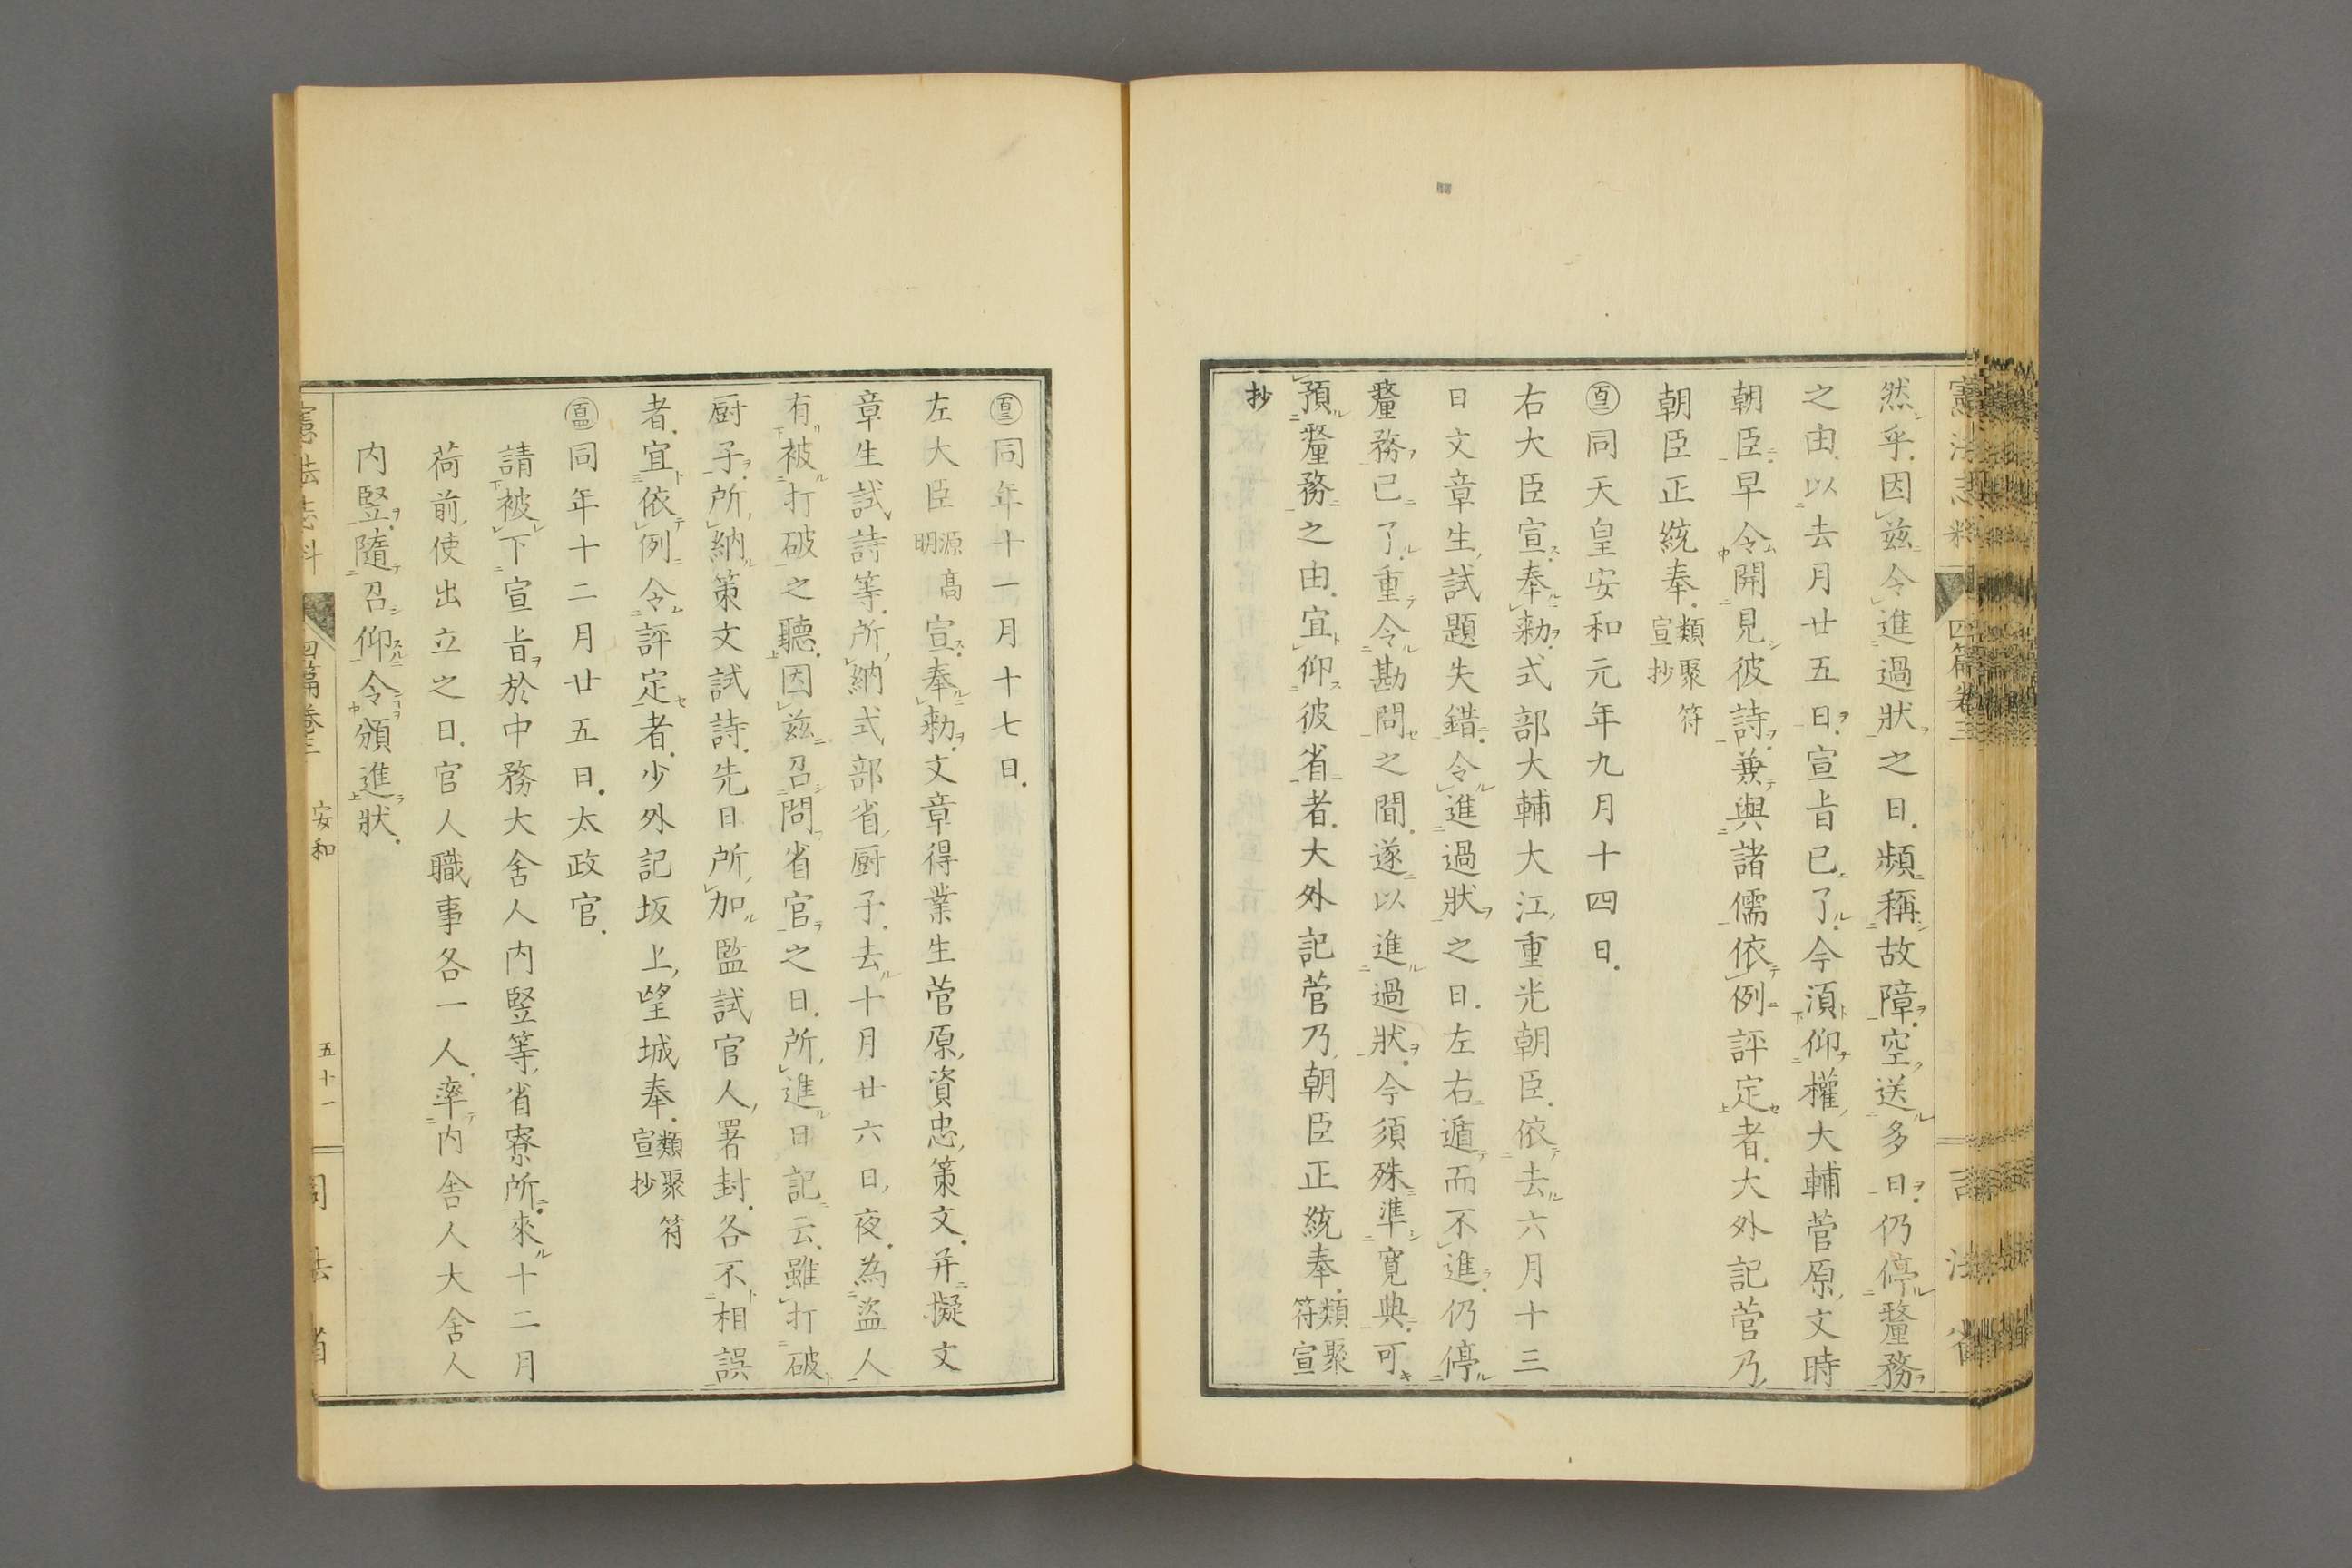 然乎因茲令進過狀之日頻稱故障空送多日仍停釐務
之由以去月廿五日宣旨已了今湏仰權大輔菅原文時
朝臣早令開見彼詩兼與諸儒依例評定者大外記菅乃
朝臣正統奉類聚符宣抄
同天皇安和元年九月十四日
右大臣宣奉勅式部大輔大江重光朝臣依去六月十三
日文章生試題失錯令進過狀之日左右遁而不進仍停
釐務已了重令勘問之間遂以進過狀今須殊準寛典可
預釐務之由宜仰彼省者大外記菅乃朝臣正統奉類聚符宣
抄
同年十一月十七日
左大臣源高明宣奉勅文章得業生菅原資忠策文并擬文
章生試詩等所納式部省厨子去十月廿六日夜為盜人
有被打破之聽因茲召問省官之日所進日記云雖打破
厨子所納策文試詩先日所加監試官人署封各不相誤
者宜依例令評定者少外記坂上望城奉類聚符宣抄
同年十二月廿五日太政官
請被下宣旨於中務大舍人内竪等省寮所來十二月
荷前使出立之日官人職事各一人率内舍人大舍人
内竪隨召仰令頒進狀
憲法志料
四篇卷三
安和
五十一
司法省